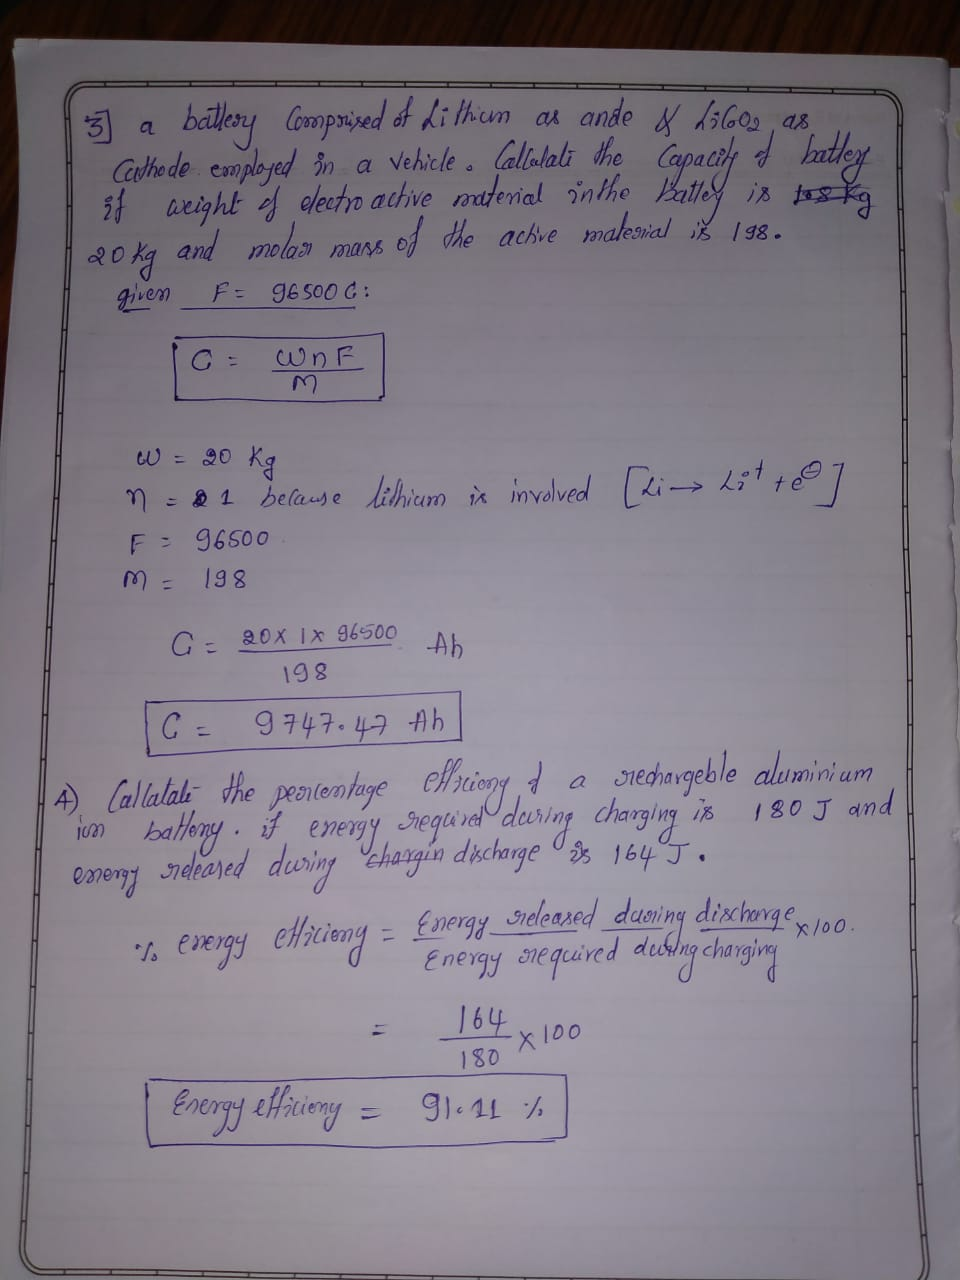 3] a battery Comprised of Lithium as ande & LiCoO2 as
Cathode employed in a vehicle. Calculate the Capacity of battery
if weight of electro active material in the Battey is 108 Kg
20 Kg and molar mass of the active material is 198.
given F = 96500 C:
C = WnF / M
W = 20 Kg
n = 1 because lithium is involved [Li → Li+ + e⊖]
F = 96500
M = 198
C = 20 x 1 x 96500 / 198 Ah
C = 9747.47 Ah
4) Callatate the percentage efficieny of a rechargeble aluminium
ion battery. if energy required during charging is 180 J and
energy released during chargin discharge is 164 J.
% energy efficieny = Energy released during discharge / Energy required during charging x 100.
= 164 / 180 x 100
Energy efficieny = 91.11 %